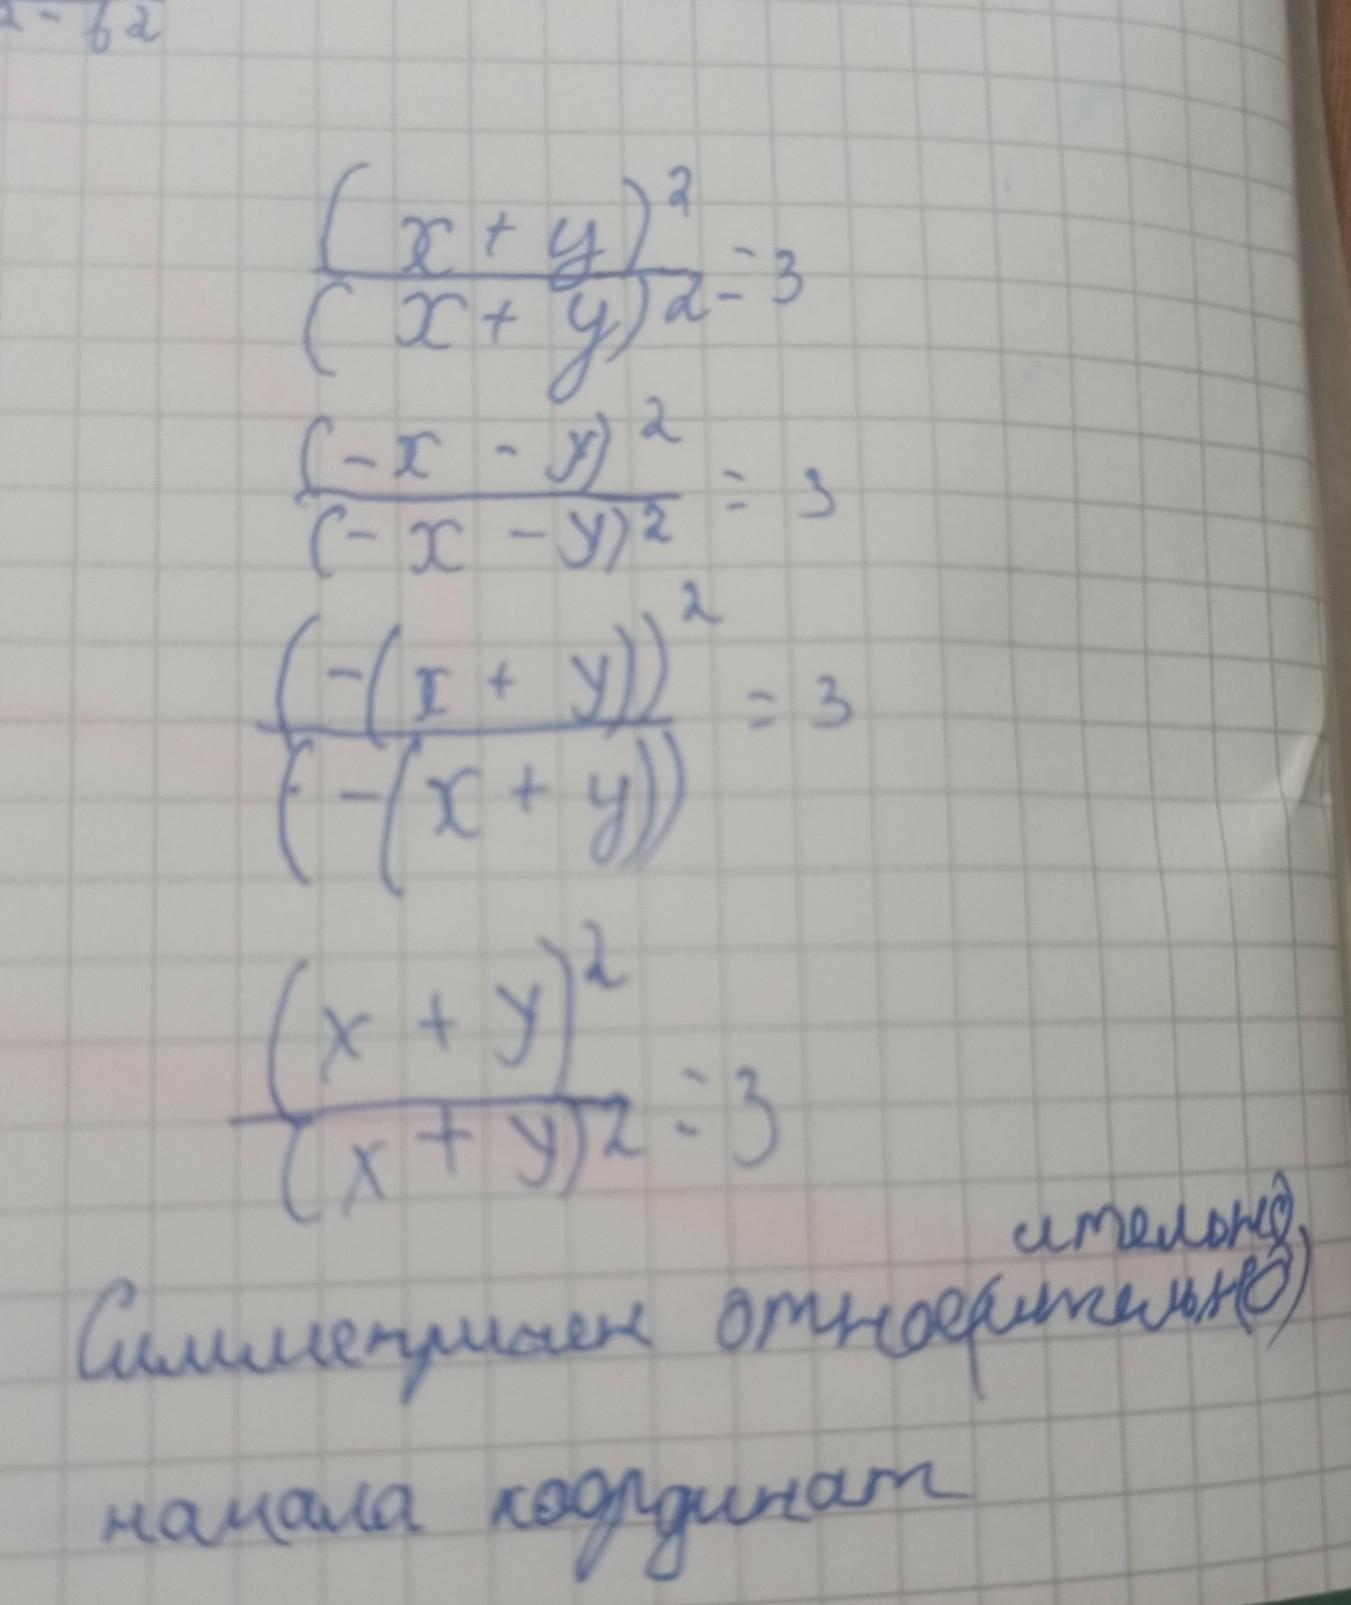 2 - b2
(x + y)^2 / (x + y)^2 = 3
(-x - y)^2 / (-x - y)^2 = 3
(-(x + y))^2 / (-(x + y)) = 3
(x + y)^2 / (x + y)^2 = 3
ительно
Симметричен относительно
начала координат